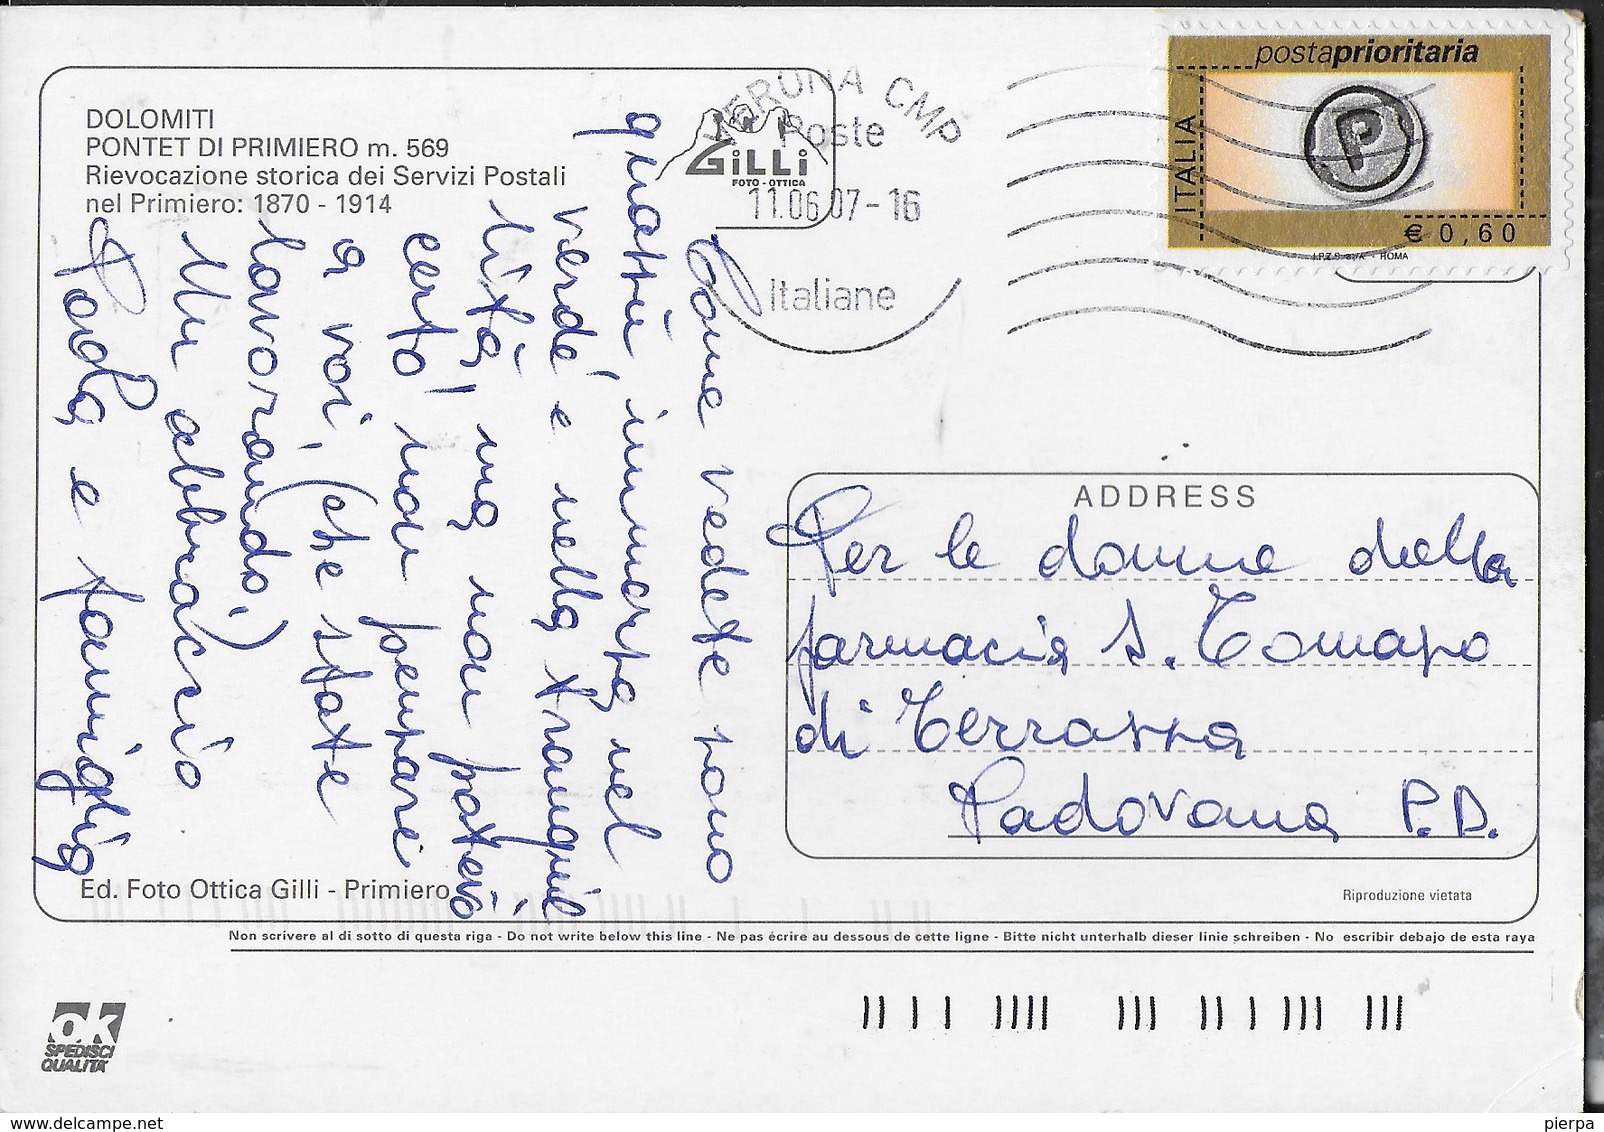 DOLOMITI
PONTET DI PRIMIERO m. 569
Rievocazione storica dei Servizi Postali
nel Primiero: 1870 - 1914
GiLLi
FOTO - OTTICA
VERONA CMP
Poste
11.06.07-16
italiane
postaprioritaria
ITALIA
P
€ 0,60
I.P.Z.S. S.p.A. - ROMA
Come vedete sono
quassù, immersa nel
verde e nella tranquil
lità, ma non potevo
certo non pensare
a voi, (che state
lavorando)
Un abbraccio
Paola e famiglia
ADDRESS
Per le donne della
farmacia S. Tomaso
di Terrassa
Padovana P.D.
Ed. Foto Ottica Gilli - Primiero
Riproduzione vietata
Non scrivere al di sotto di questa riga - Do not write below this line - Ne pas écrire au dessous de cette ligne - Bitte nicht unterhalb dieser linie schreiben - No escribir debajo de esta raya
OK
SPEDISCI
QUALITÀ
pierpa